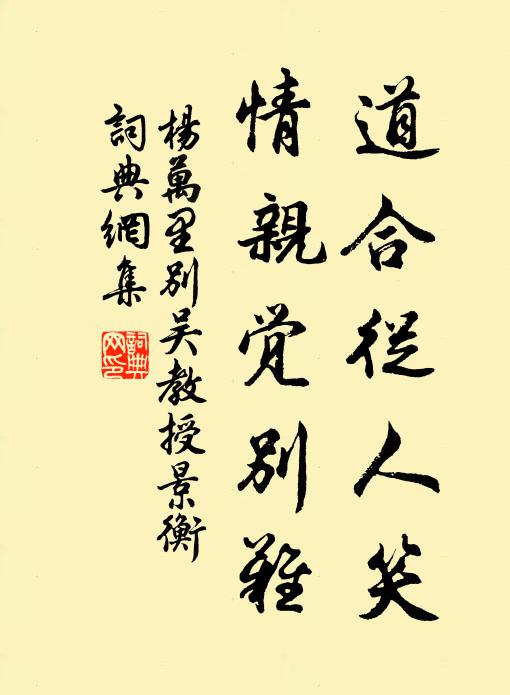 道合從人笑
情親覺別難
楊萬里別吳教授景衡
詞典網集
詞典網印